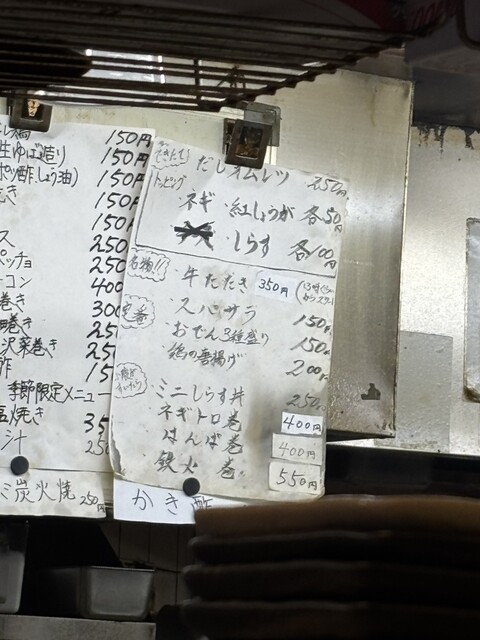 150円
生ゆば造り) 150円
ポン酢、しょう油) 150円
150円
150円
ス 250
ペッチョ 250
ーコン 400
巻き 300
巻き 250
沢菜巻き 250
酢 15
季節限定メニュー
焼き 35
汁 250
ミ炭火焼 250円
できたて! だしオムレツ 250円
トッピング
ネギ・紅しょうが 各50円
・しらす 各100円
名物!! 牛たたき 350円
定番 スパサラ 150円
おでん3種盛り 150円
鶏の唐揚げ 200円
ミニしらす丼 250
ネギトロ巻 400円
はんぱ巻 400円
鉄火巻 550円
かき酢